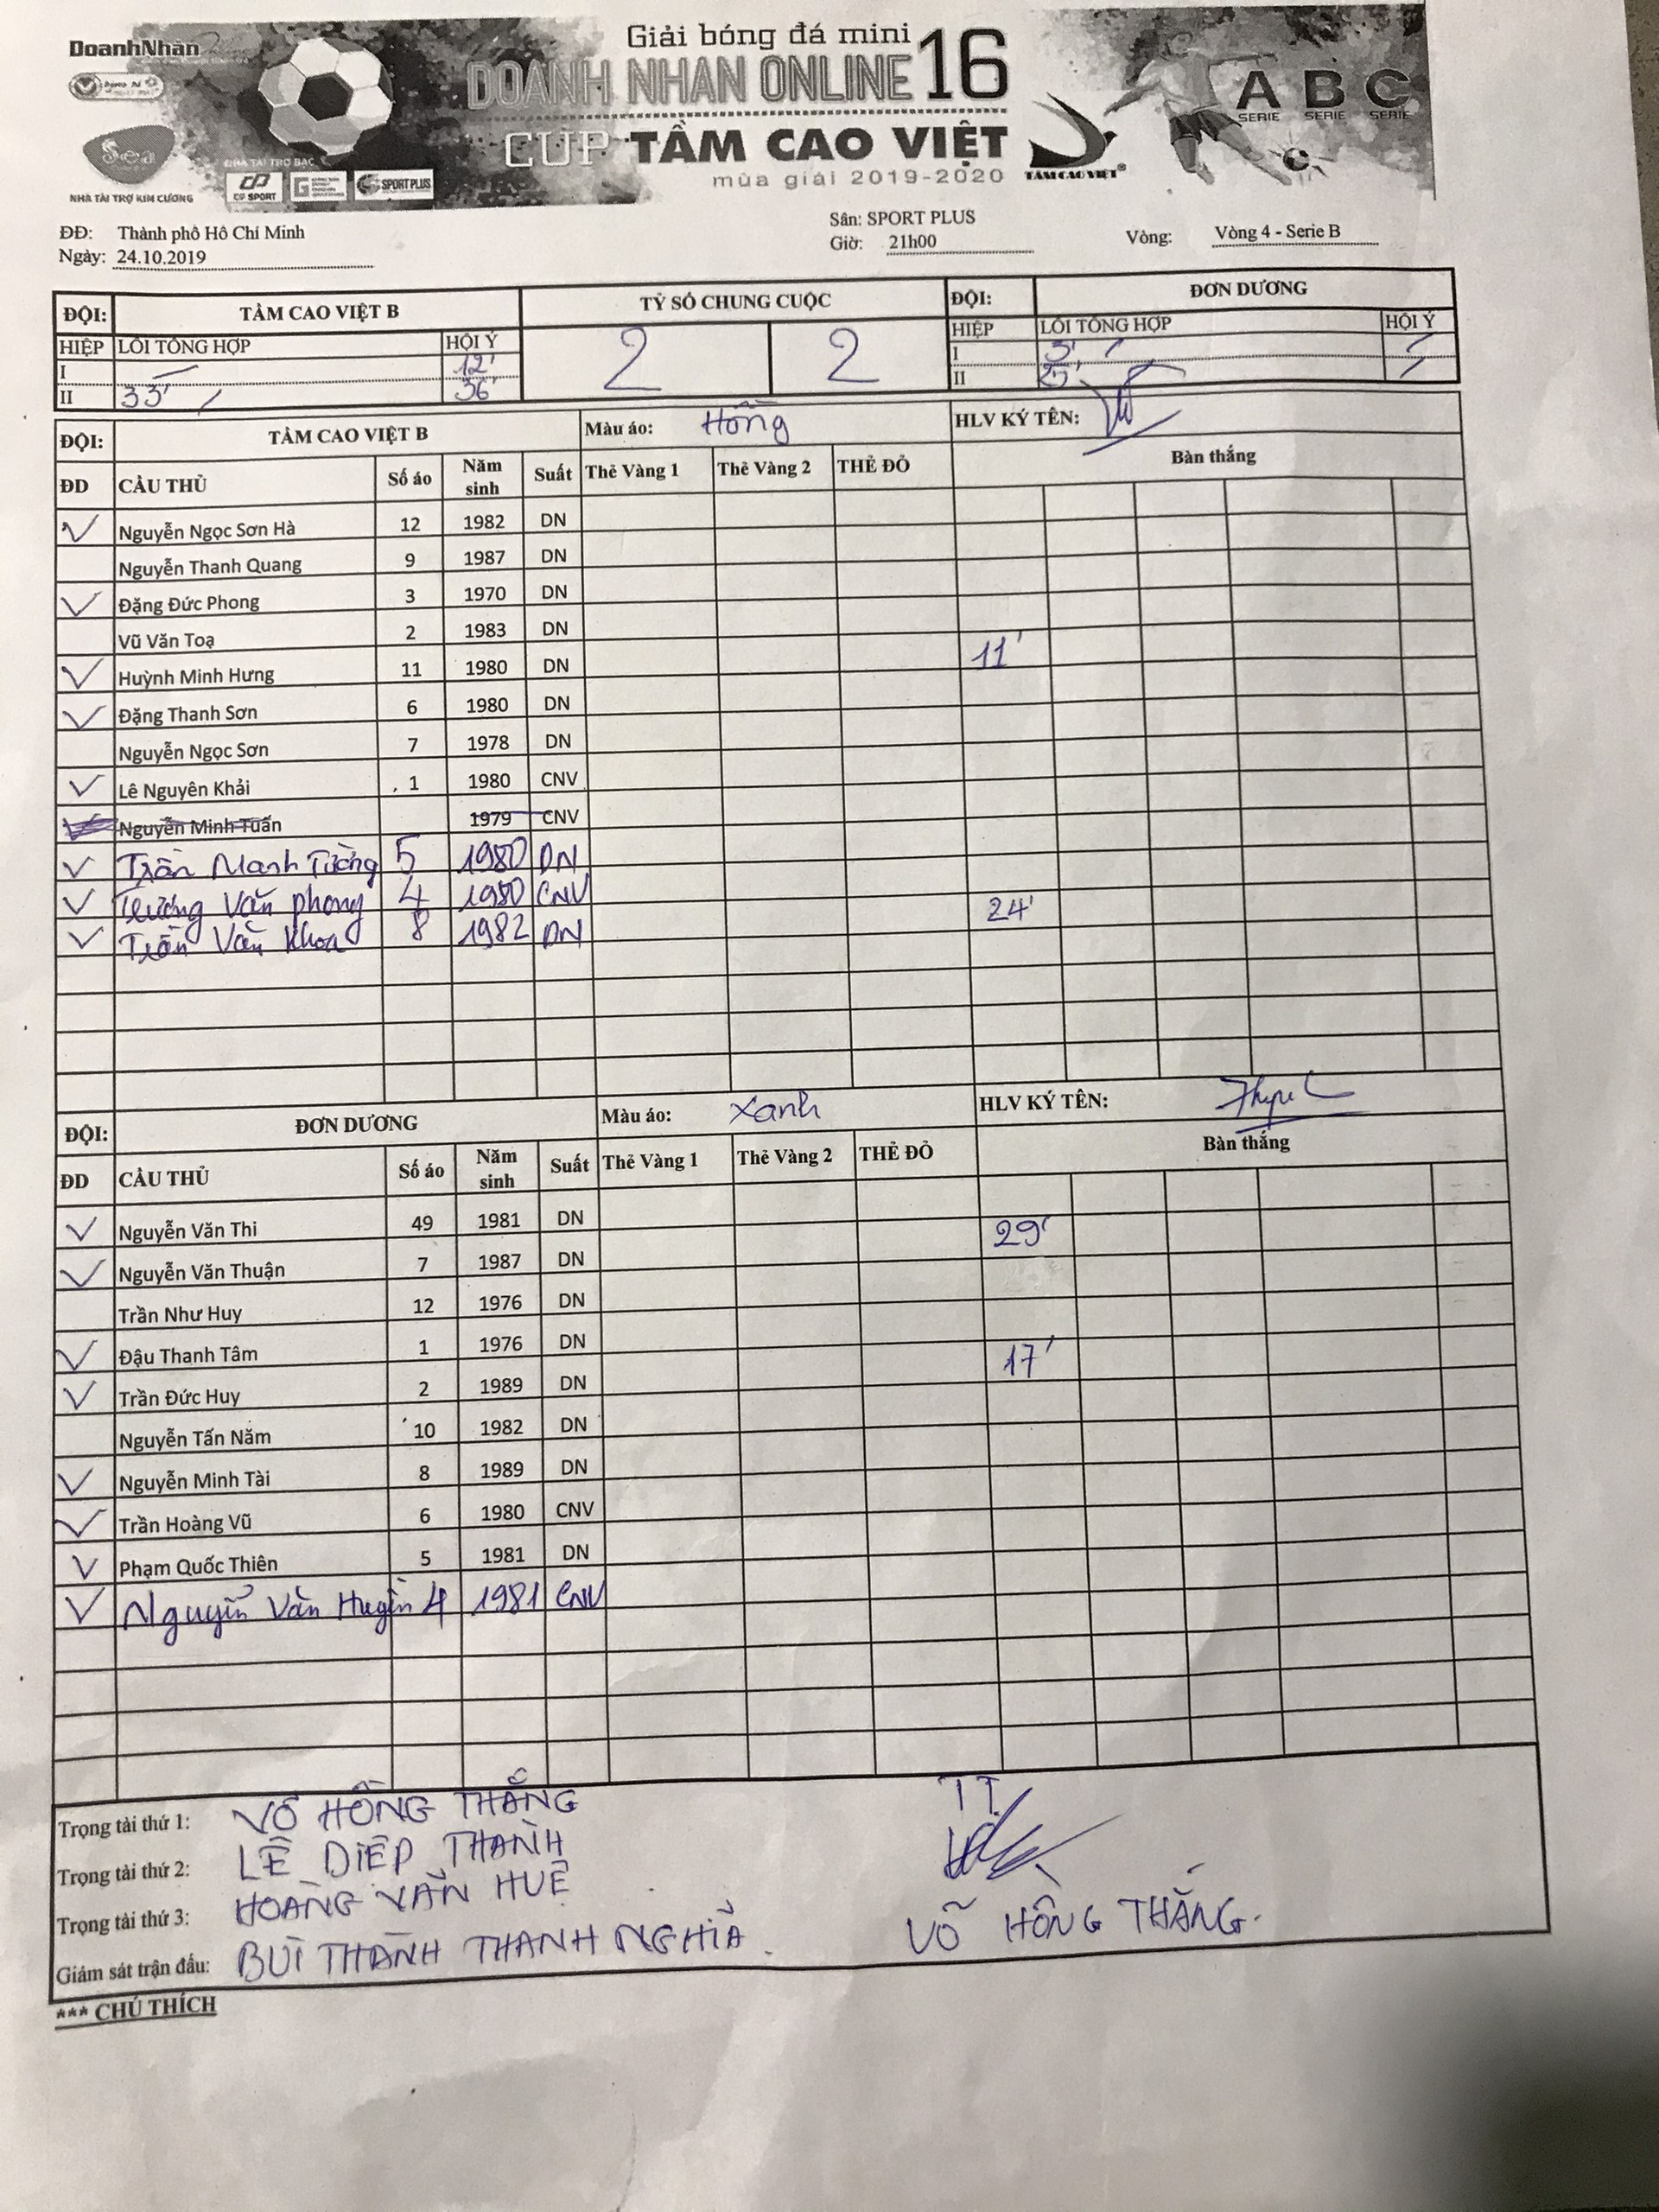 DoanhNhân
Giải bóng đá mini
DOANH NHAN ONLINE 16
CUP TẦM CAO VIỆT
mùa giải 2019-2020
TẦM CAO VIỆT®
A B C
SERIE SERIE SERIE
Sea
NHÀ TÀI TRỢ KIM CƯƠNG
NHÀ TÀI TRỢ BẠC
CP SPORT
SPORT PLUS
ĐĐ: Thành phố Hồ Chí Minh
Ngày: 24.10.2019
Sân: SPORT PLUS
Giờ: 21h00
Vòng: Vòng 4 - Serie B
ĐỘI: TẦM CAO VIỆT B TỶ SỐ CHUNG CUỘC ĐỘI: ĐƠN DƯƠNG
HIỆP LỖI TỔNG HỢP HỘI Ý 2 2 HIỆP LỖI TỔNG HỢP HỘI Ý
I 12' I 3'
II 33' 36' II 25'
ĐỘI: TẦM CAO VIỆT B Màu áo: Hồng HLV KÝ TÊN:
ĐD CẦU THỦ Số áo Năm sinh Suất Thẻ Vàng 1 Thẻ Vàng 2 THẺ ĐỎ Bàn thắng
Nguyễn Ngọc Sơn Hà 12 1982 DN
Nguyễn Thanh Quang 9 1987 DN
Đặng Đức Phong 3 1970 DN
Vũ Văn Toạ 2 1983 DN
Huỳnh Minh Hưng 11 1980 DN 11'
Đặng Thanh Sơn 6 1980 DN
Nguyễn Ngọc Sơn 7 1978 DN
Lê Nguyên Khải 1 1980 CNV
Nguyễn Minh Tuấn 1979 CNV
Trần Mạnh Tường 5 1980 DN
Trương Văn phong 4 1980 CNV
Trần Văn Khoa 8 1982 DN 24'
ĐỘI: ĐƠN DƯƠNG Màu áo: Xanh HLV KÝ TÊN:
ĐD CẦU THỦ Số áo Năm sinh Suất Thẻ Vàng 1 Thẻ Vàng 2 THẺ ĐỎ Bàn thắng
Nguyễn Văn Thi 49 1981 DN
Nguyễn Văn Thuận 7 1987 DN 29'
Trần Như Huy 12 1976 DN
Đậu Thanh Tâm 1 1976 DN
Trần Đức Huy 2 1989 DN 17'
Nguyễn Tấn Năm 10 1982 DN
Nguyễn Minh Tài 8 1989 DN
Trần Hoàng Vũ 6 1980 CNV
Phạm Quốc Thiên 5 1981 DN
Nguyễn Văn Huyền 4 1981 CNV
Trọng tài thứ 1: VÕ HỒNG THẮNG TT
Trọng tài thứ 2: LÊ DIỆP THANH
Trọng tài thứ 3: HOÀNG VĂN HUỆ
Giám sát trận đấu: BÙI THÀNH THANH NGHĨA. VÕ HỒNG THẮNG.
*** CHÚ THÍCH